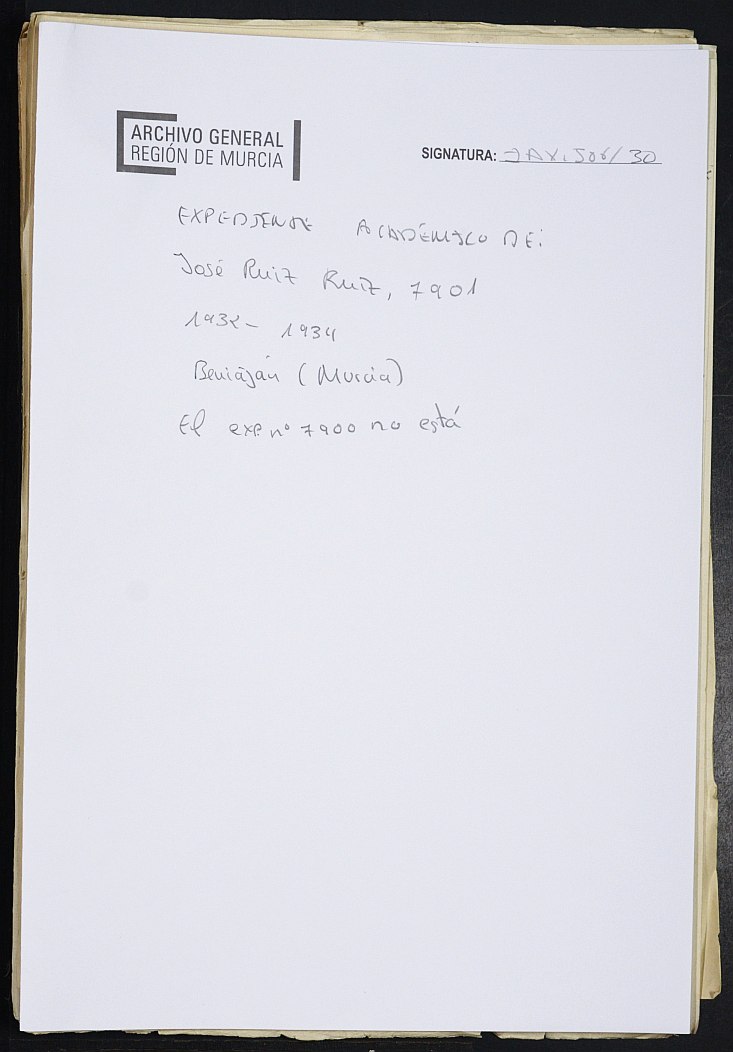 ARCHIVO GENERAL
REGIÓN DE MURCIA
SIGNATURA: JAX,506/30
EXPEDIENTE ACADÉMICO DE:
José Ruiz Ruiz, 7901
1932- 1934
Beniaján (Murcia)
El exp. nº 7900 no está